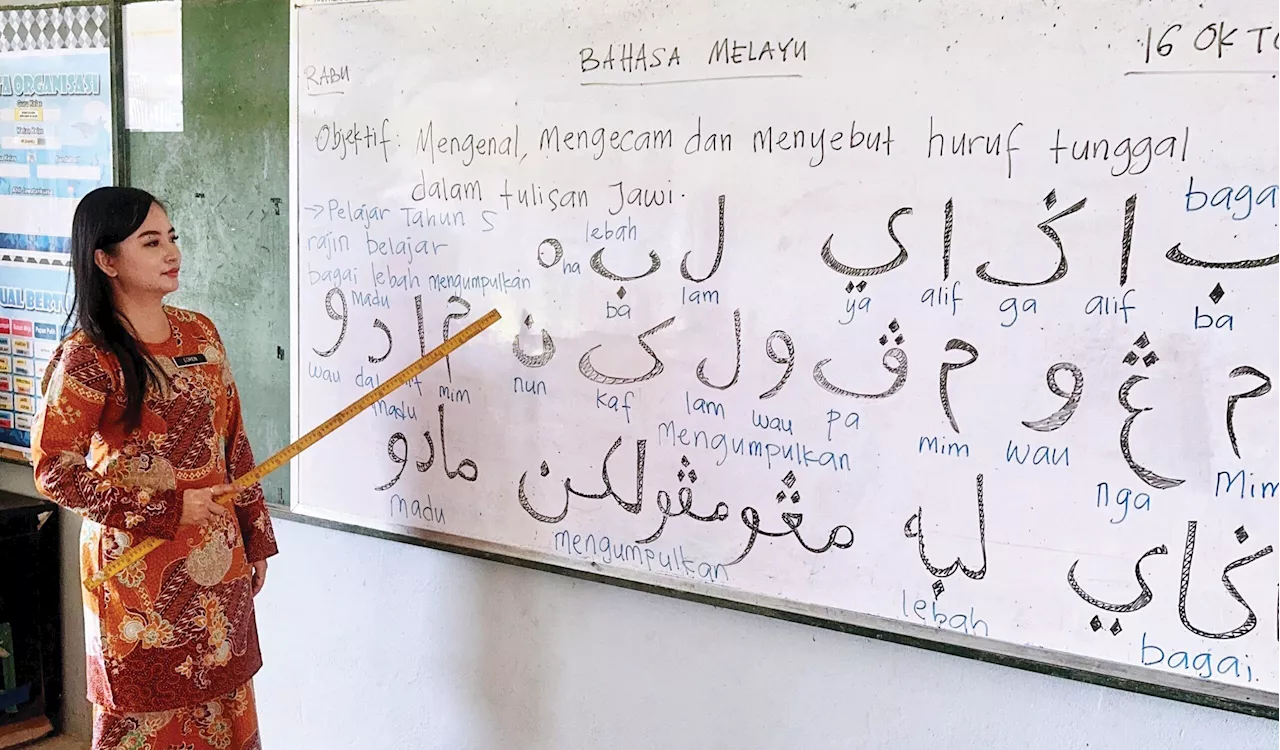 A ORGANISASI
Guru Kelas
UAL BERT
RABU
BAHASA MELAYU
16 OKTO
Objektif: Mengenal, mengecam dan menyebut huruf tunggal
dalam tulisan Jawi.
→ Pelajar Tahun 5
rajin belajar
bagai lebah mengumpulkan
madu
baga
lebah
ب ا ݢ ا ي ل ب ه
ha ba lam ya alif ga alif ba
م ڠ و م ڤ و ل ک ن م ا د و
wau dal alif mim nun kaf lam wau pa mim wau nga Mim
madu
Mengumpulkan
باݢاي لبه مڠومڤولکن مادو
madu mengumpulkan lebah bagai.